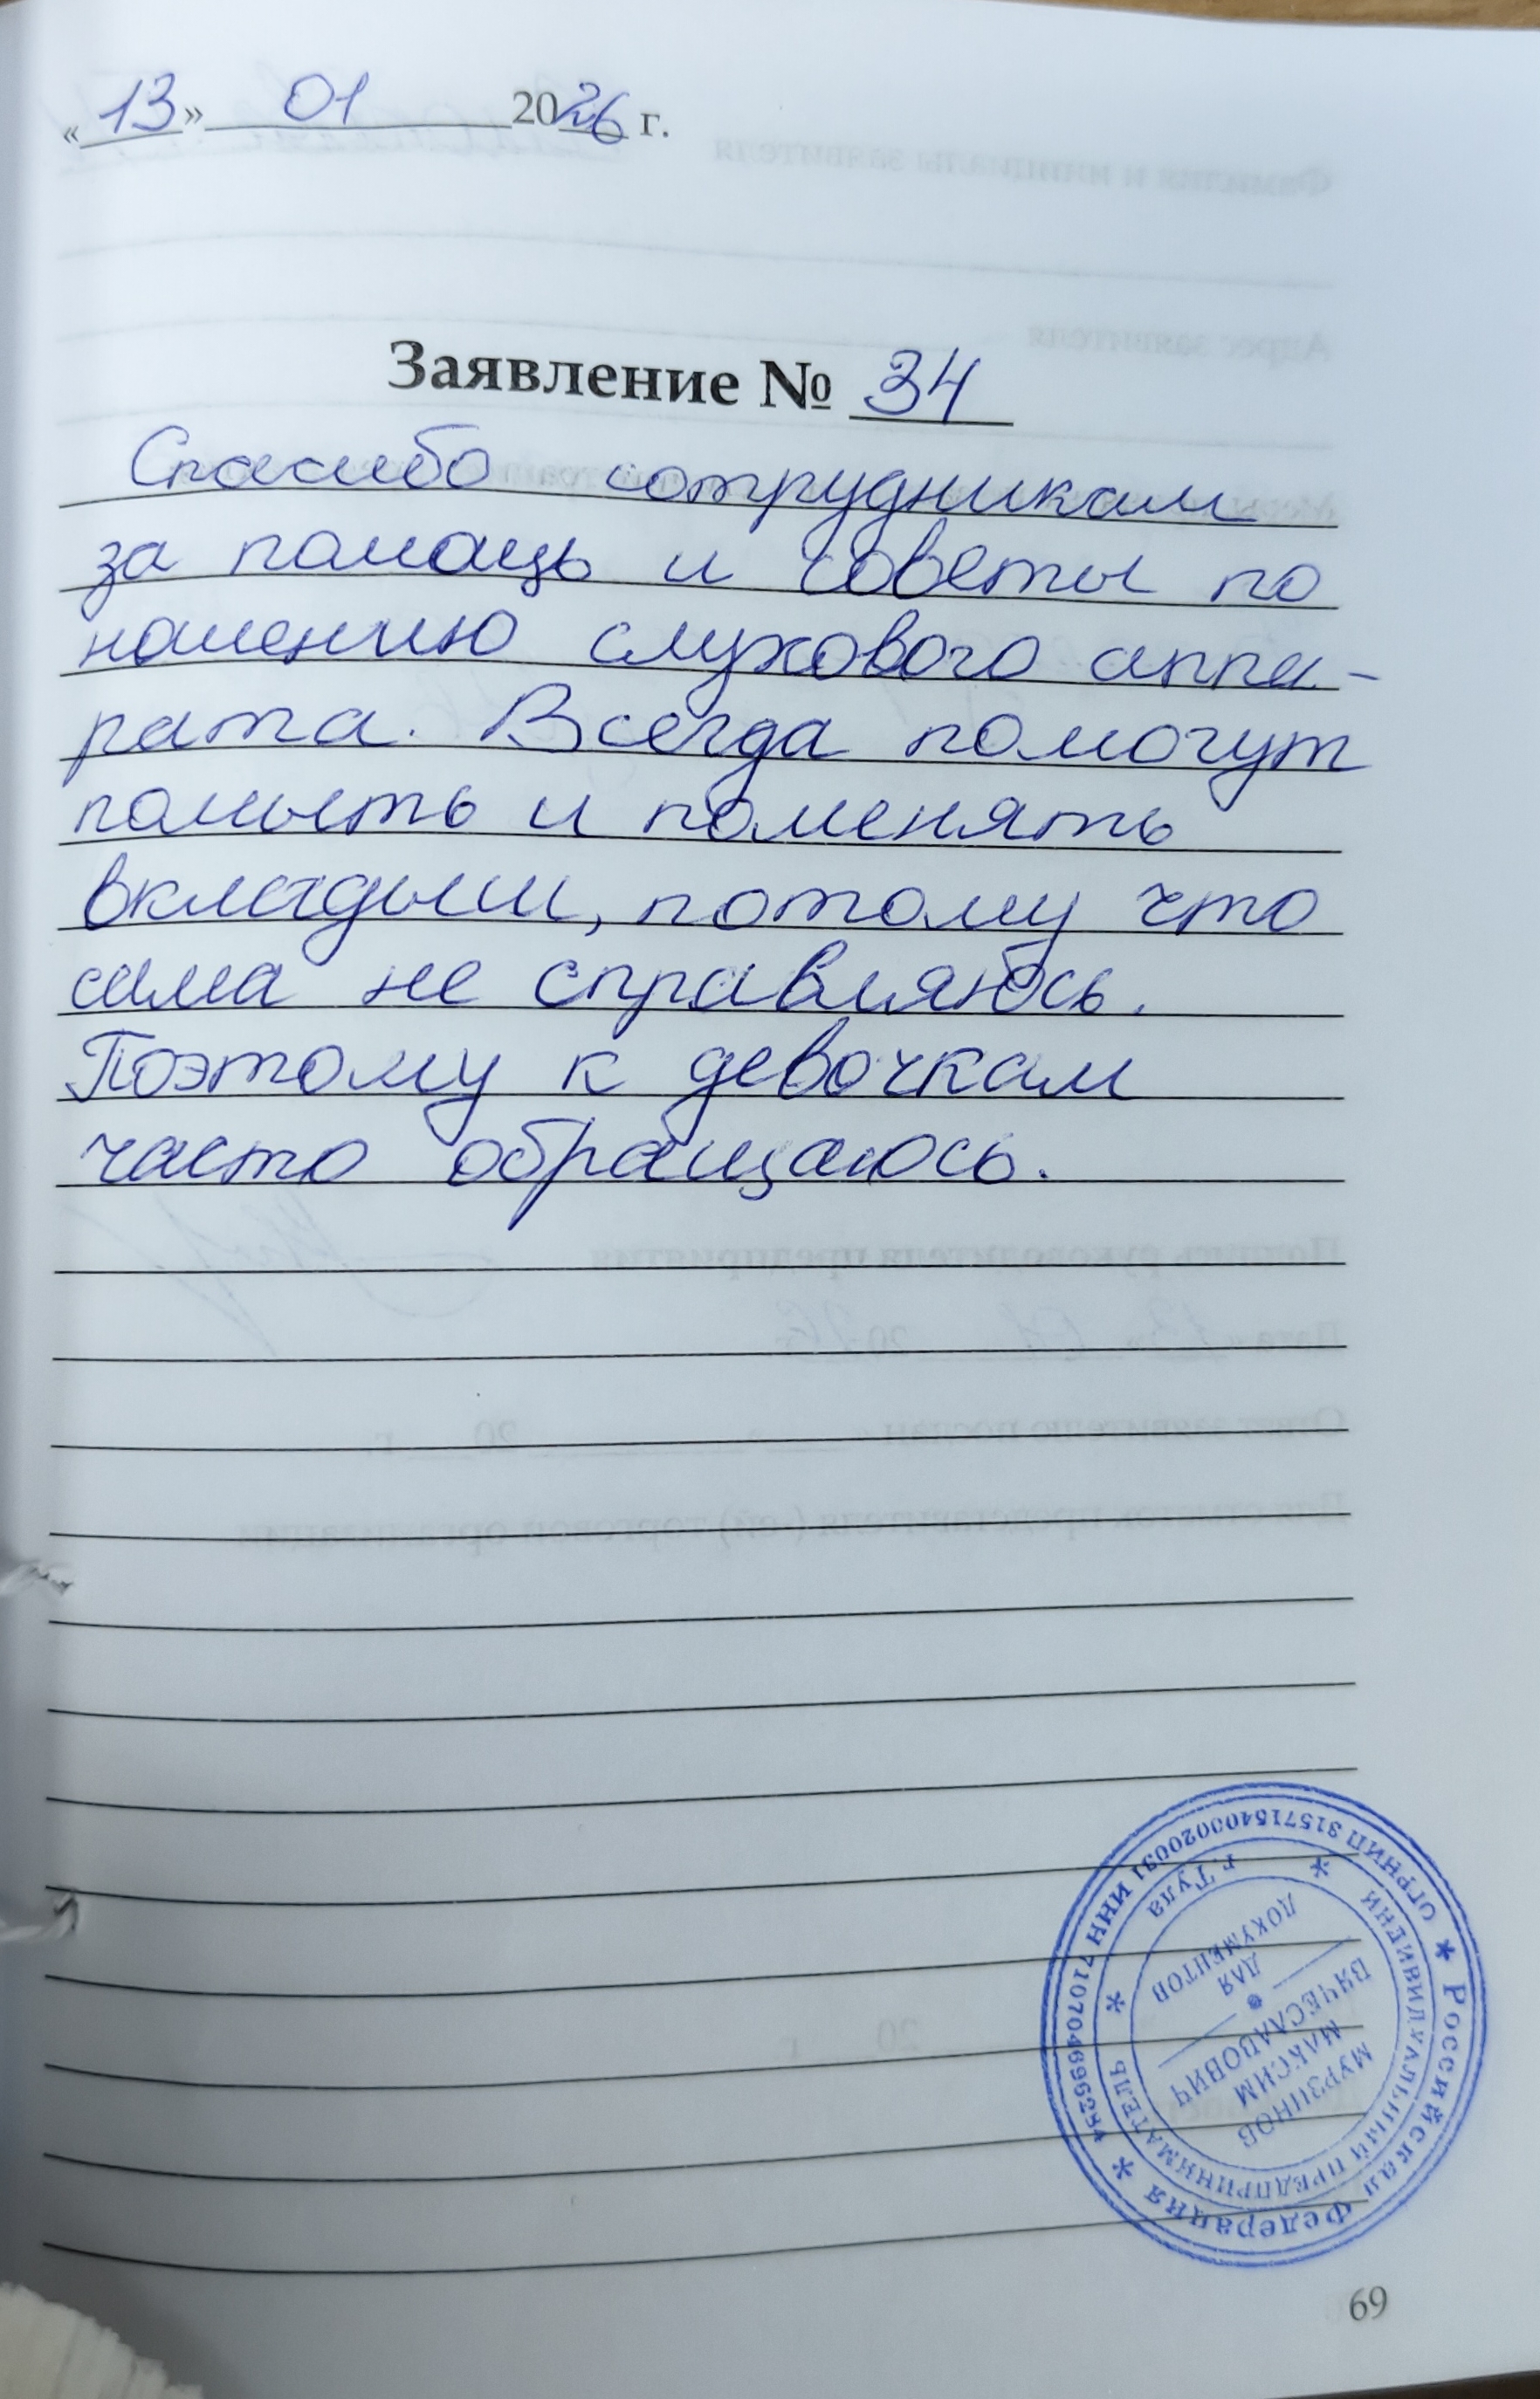 «13» 01 2026 г.
Заявление № 34
Спасибо сотрудникам
за помощь и советы по
ношению слухового аппа-
рата. Всегда помогут
помыть и поменять
вкладыши, потому что
сама не справляюсь.
Поэтому к девочкам
часто обращаюсь.
* Российская Федерация *
ИНН 710704699628
ИНДИВИДУАЛЬНЫЙ ПРЕДПРИНИМАТЕЛЬ
* г. Тула *
МУРЗИНОВ
МАКСИМ
ВЯЧЕСЛАВОВИЧ
ДЛЯ
ДОКУМЕНТОВ
69